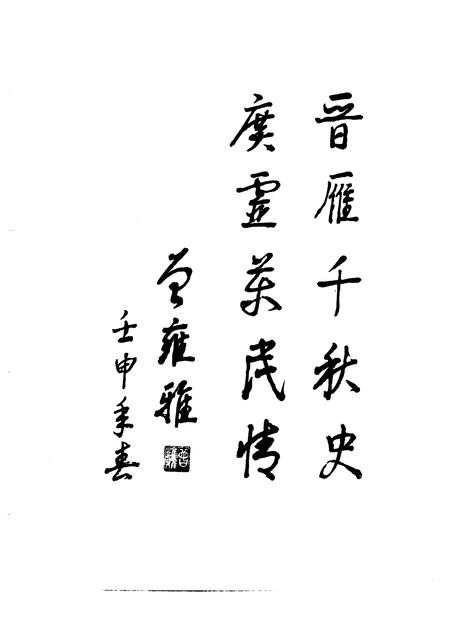 晋雁千秋史
广灵万民情
曾雍雅
壬申年春